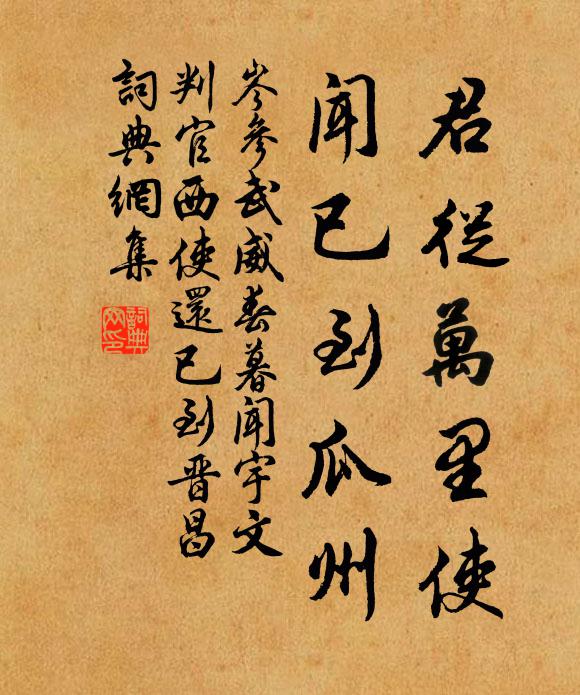 君從萬里使
聞已到瓜州
岑參武威春暮聞宇文
判官西使還已到晉昌
詞典網集
詞典網印